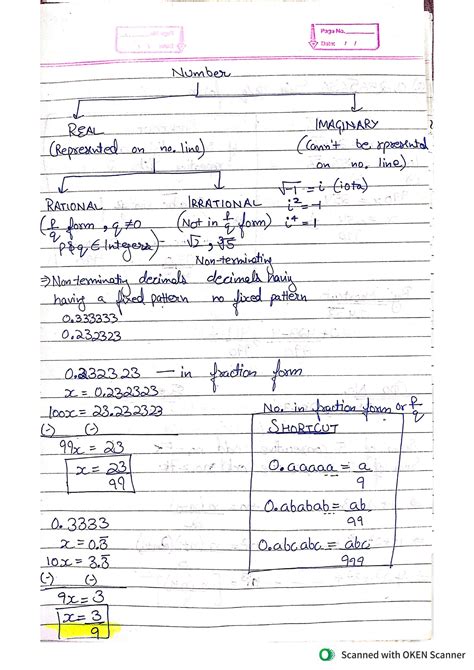 Page No.
Date: / /
Number
REAL
(Represented on no. line)
IMAGINARY
(Can't be rpresented
on no. line).
√-1 = i (iota)
i² = -1
i⁴ = 1
RATIONAL
(p/q form, q≠0
p & q ∈ Integers)
IRRATIONAL
(Not in p/q form)
√2, ∛5
Non-terminating
decimals having
no fixed pattern
⇒ Non-terminating decimals
having a fixed pattern
0.333333
0.232323
0.232323 — in fraction form
x = 0.232323
100x = 23.232323
(-) (-)
99x = 23
x = 23/99
0.3333
x = 0.3̅
10x = 3.3̅
(-) (-)
9x = 3
x = 3/9
No. in fraction form or p/q
SHORTCUT
0.aaaaa = a/9
0.ababab = ab/99
0.abcabc = abc/999
Scanned with OKEN Scanner